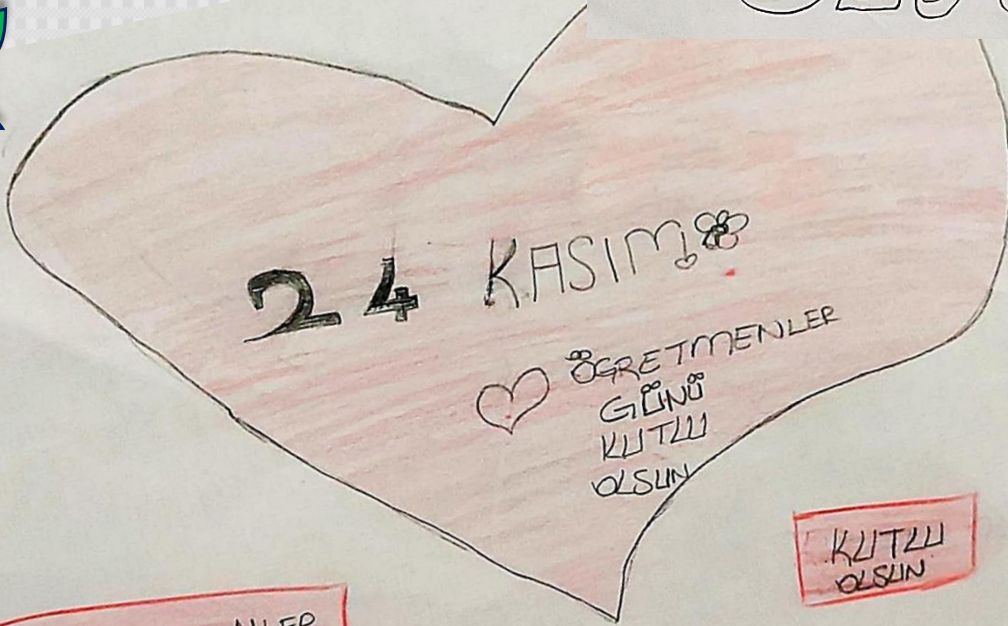 24 KASIM
ÖGRETMENLER
GÜNÜ
KUTLU
OLSUN
KUTLU
OLSUN